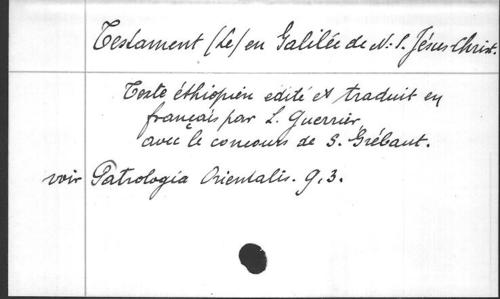 Testament (Le) en Galilée de N.-S. Jésus-Christ.
Texte éthiopien edité et traduit en
français par L. Guerrier,
avec le concours de S. Grébaut.
voir Patrologia Orientalis. 9,3.